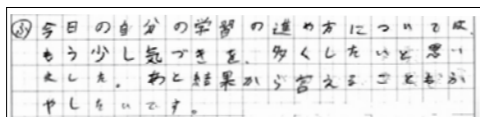 ㋫今日の自分の学習の進め方については、
もう少し気づきを、多くしたいと思い
ました。あと結果から答えることもふ
やしたいです。